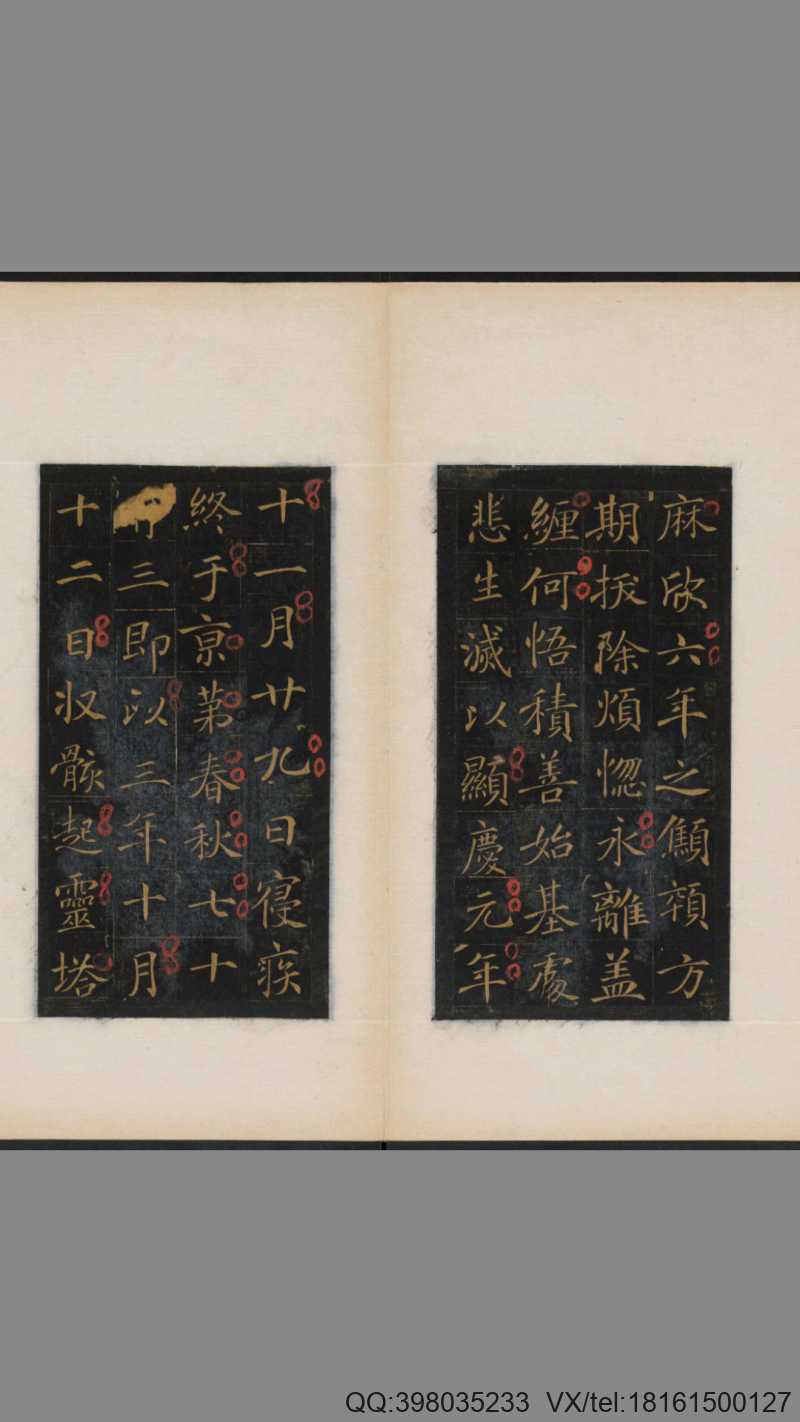 麻欣六年之㒹頞方
期拔除煩惚永離盖
纏何悟積善始基處
悲生滅以顯慶元年
十一月廿九日寑疾
終于亰第春秋七十
三即以三年十月
十二日収骸起靈塔
QQ:398035233 VX/tel:18161500127